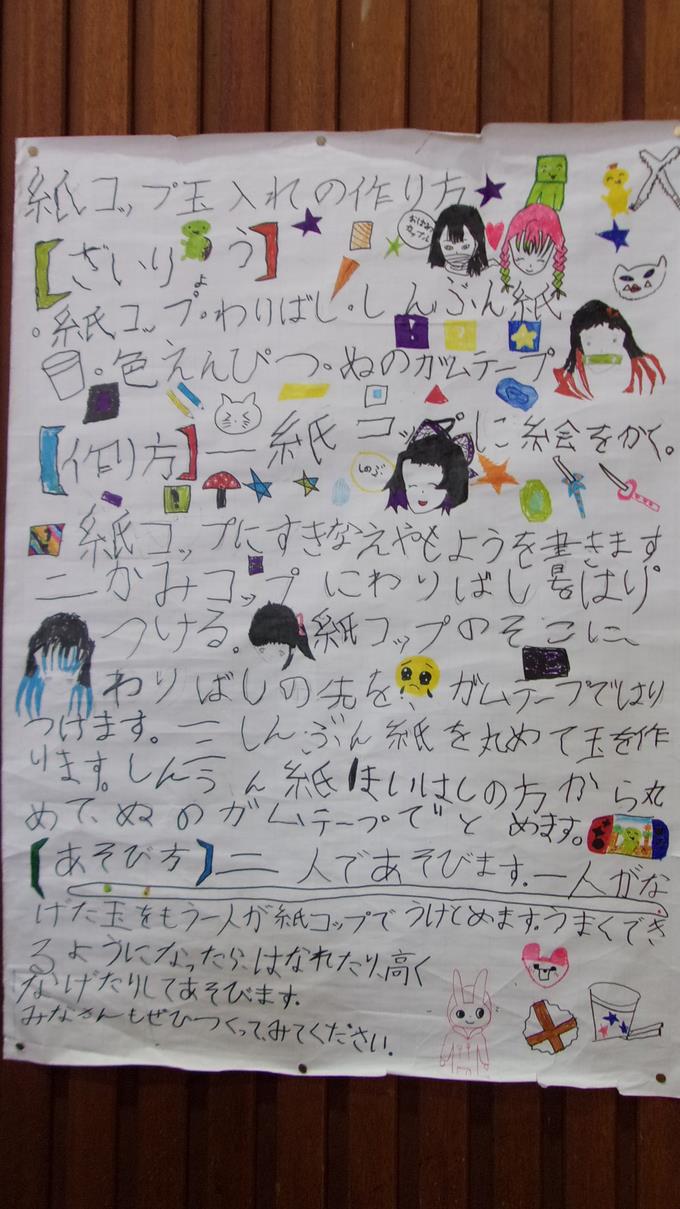 紙コップ玉入れの作り方
【ざいりょう】
・紙コップ・わりばし・しんぶん紙
・色えんぴつ・ぬのガムテープ
【作り方】一 紙コップに絵をかく。
しのぶ
紙コップにすきなえやもようを書きます
二かみコップにわりばしはり
つける。紙コップのそこに、
わりばしの先をガムテープではり
つけます。三しんぶん紙を丸めて玉を作
ります。しんぶん紙1まいはしの方から丸
めて、ぬのガムテープでとめます。
【あそび方】二人であそびます。一人がな
げた玉をもう一人が紙コップでうけとめます。うまくでき
るようになったら、はなれたり、高く
なげたりしてあそびます。
みなさんもぜひつくって、みてください。